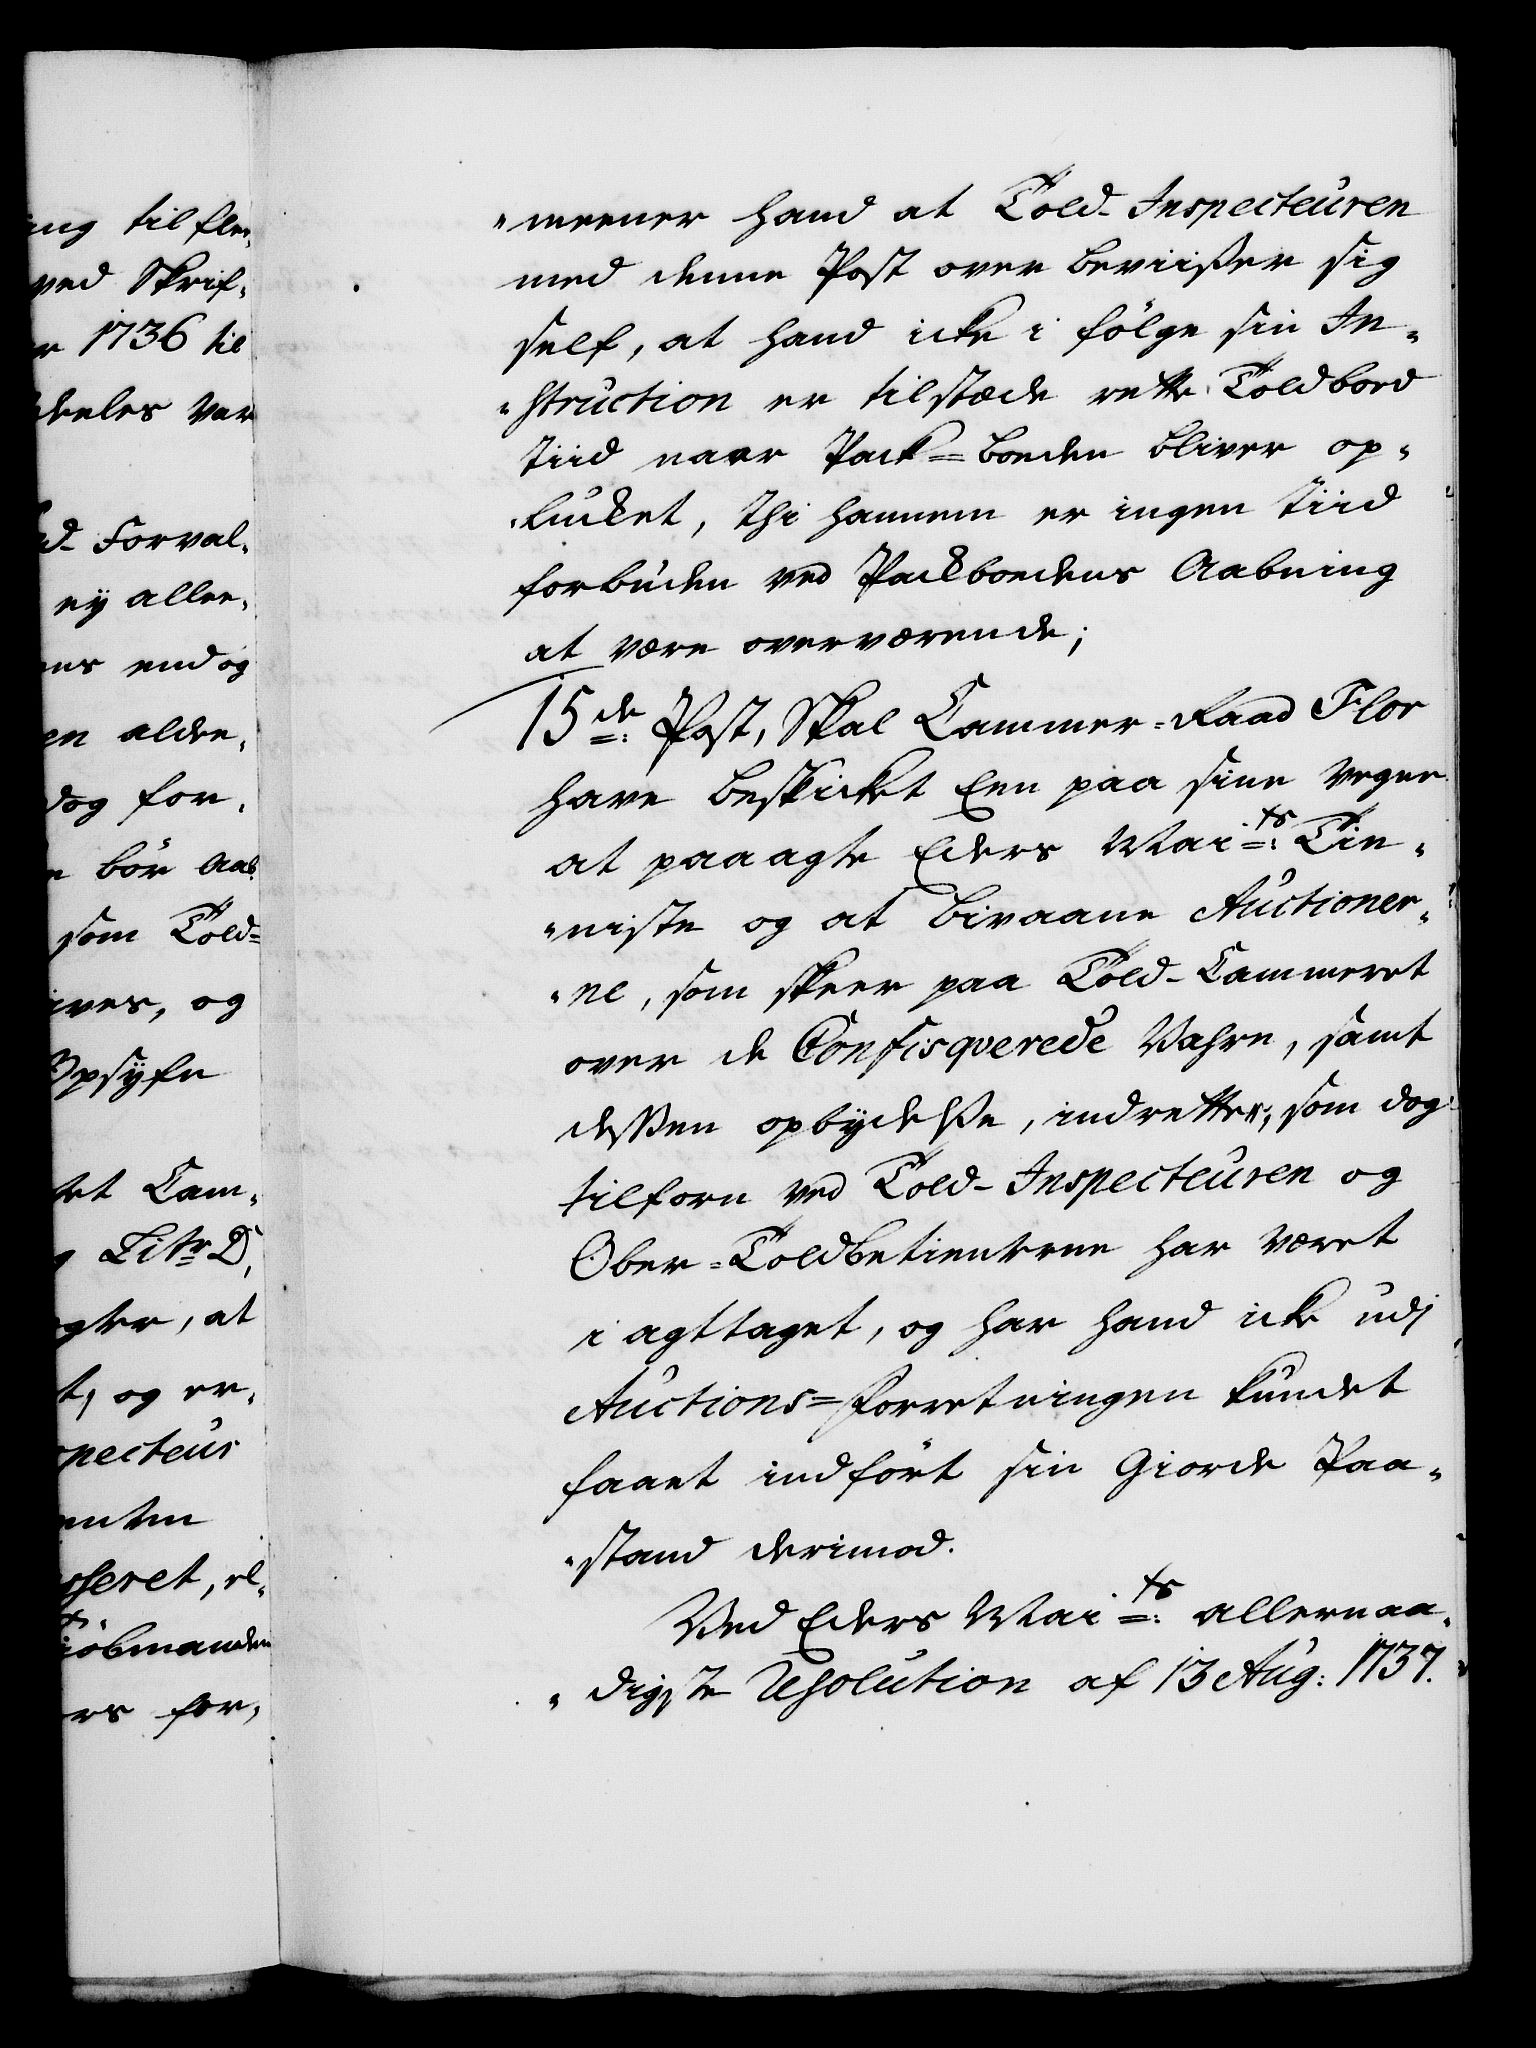 ing til fler,
ved Skrif,
r 1736 til
deeles var
d. Forval,
ey aller,
ens end og
en aldre,
dog for,
bör Aab
som Told=
ives, og
Opsÿfn
et Cam,
Litr D,
gter, at
t, og er,
pecteur
enten
seret, el,
iöbmanden
ers for,
"meener hand at Told-Inspecteuren
med denne Post over beviiser sig
self, at hand icke i fölge sin In,
"struction er tilstæde rette Toldbord
Tiid naar Pack=boeden bliver op,
"lucket, thi hannem er ingen Tiid
forbuden ved Packboedens Aabning
at være overværende;
15de: Post, Skal Cammer=Raad Flor
have beskicket Een paa sine Vegne
at paaagte Eders Mai:ts Tien,
"niste og at bivaane Auctioner,
"ne, som skeer paa Told-Cammeret
over de Confisqverede Vahre, samt
dessen opbÿdelse, indrettes, som dog
tilforn ved Told-Inspecteuren og
Ober=Toldbetienterne har været
i agttaget, og har hand icke udj
Auctions=Forretningen kundet
faaet indfört sin Giorde Paa,
"stand derimod.
Ved Eders Mai:ts allernaa,
"digste Resolution af 13 Aug: 1737.